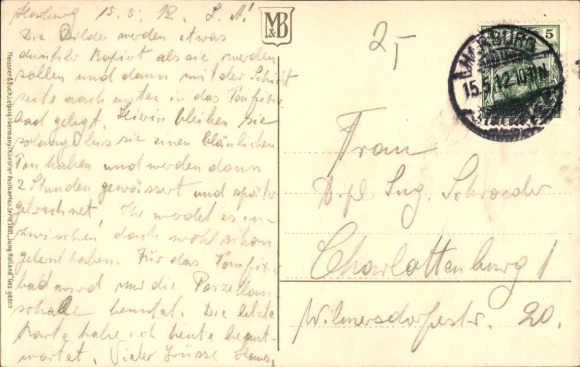 Harburg 15.5.12. L. A!
Die Bilder werden etwas
dunkler kopiert als sie werden
sollen und dann mit der Schicht
seite nach unten in das Tonfixier
bad gelegt. Hierin bleiben sie
solang bis sie einen bläulichen
Ton haben und werden dann
2 Stunden gewässert und später
getrocknet, Ihr werdet es in-
zwischen doch wohl schon
gelesen haben. Für das Tonfixier
bad wird nur die Porzellan
schale benutzt. Die letzte
Karte habe ich heute beant-
wortet. Viele Grüsse Hans.
M&B
2,-
5
HARBURG
15.5.12.10-11V
Frau
Dipl. Ing. Schroeder
Charlottenburg 1
Wilmersdorferstr. 20.
Meissner & Buch, Leipzig (Germany) Künstler-Postkarten Serie